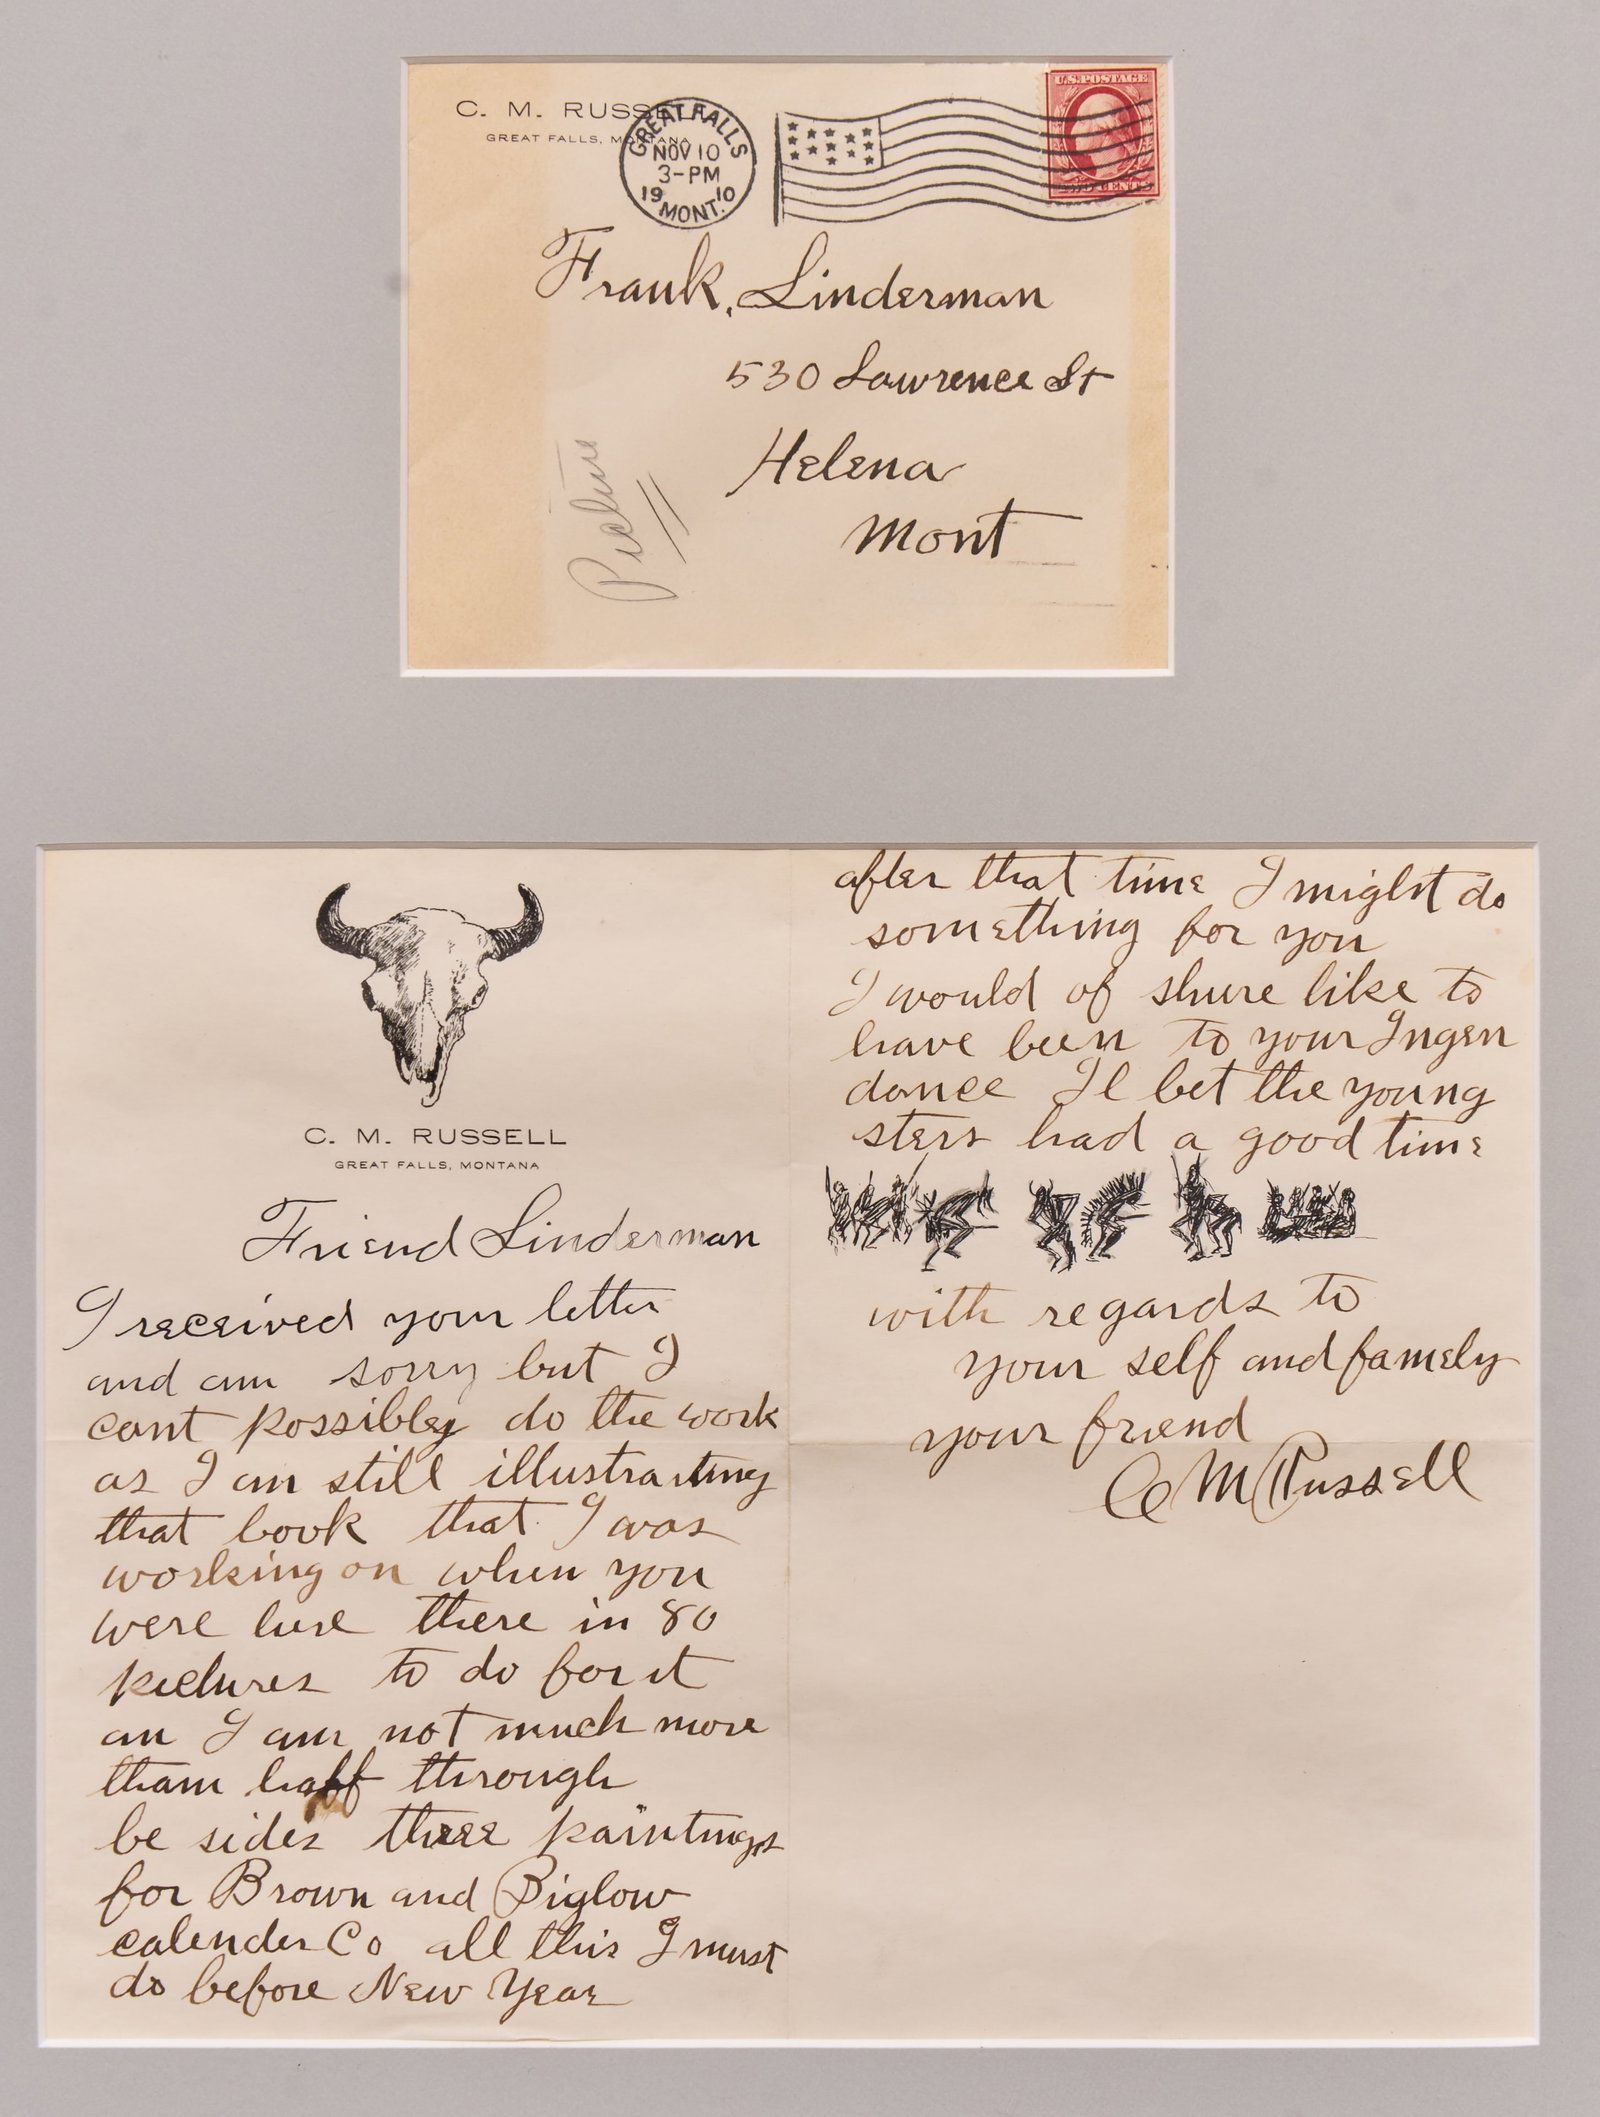 C. M. RUSSELL
GREAT FALLS, MONTANA
GREAT FALLS
NOV 10
3-PM
1910
MONT.
U.S. POSTAGE
TWO CENTS
Frank, Linderman
530 Lawrence St
Helena
Mont
Picture
C. M. RUSSELL
GREAT FALLS, MONTANA
Friend Linderman
I received your letter
and am sorry but I
cant possibley do the work
as I am still illustrarting
that book that I was
working on when you
were hure there in 80
picturs to do for it
an I am not much more
tham haff through
be sides three paintings
for Brown and Biglow
calender Co all this I must
do before New Year
after that time I might do
something for you
I would of shure like to
have been to your Ingen
dance Il bet the young
sters had a good time
with regards to
your self and famely
your friend
C M Russell